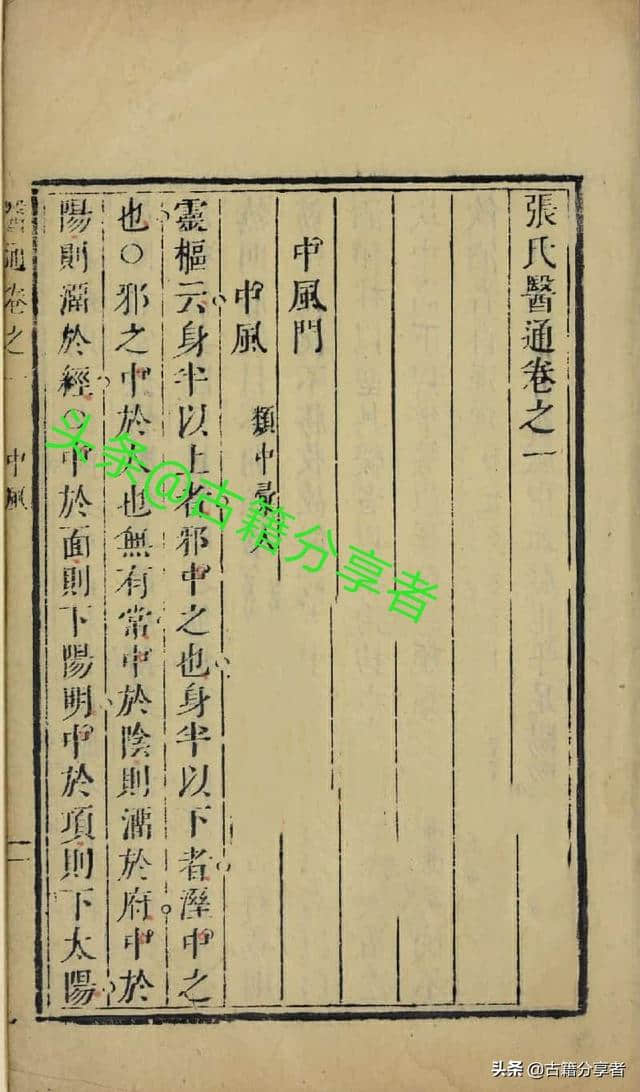 張氏醫通卷之一
中風門
中風 類中
靈樞云身半以上者邪中之也身半以下者溼中之
也○邪之中於人也無有常中於陰則溜於府中於
陽則溜於經○中於面則下陽明中於項則下太陽
醫通卷之一 中風 一
头条@古籍分享者
头条 @古籍分享者